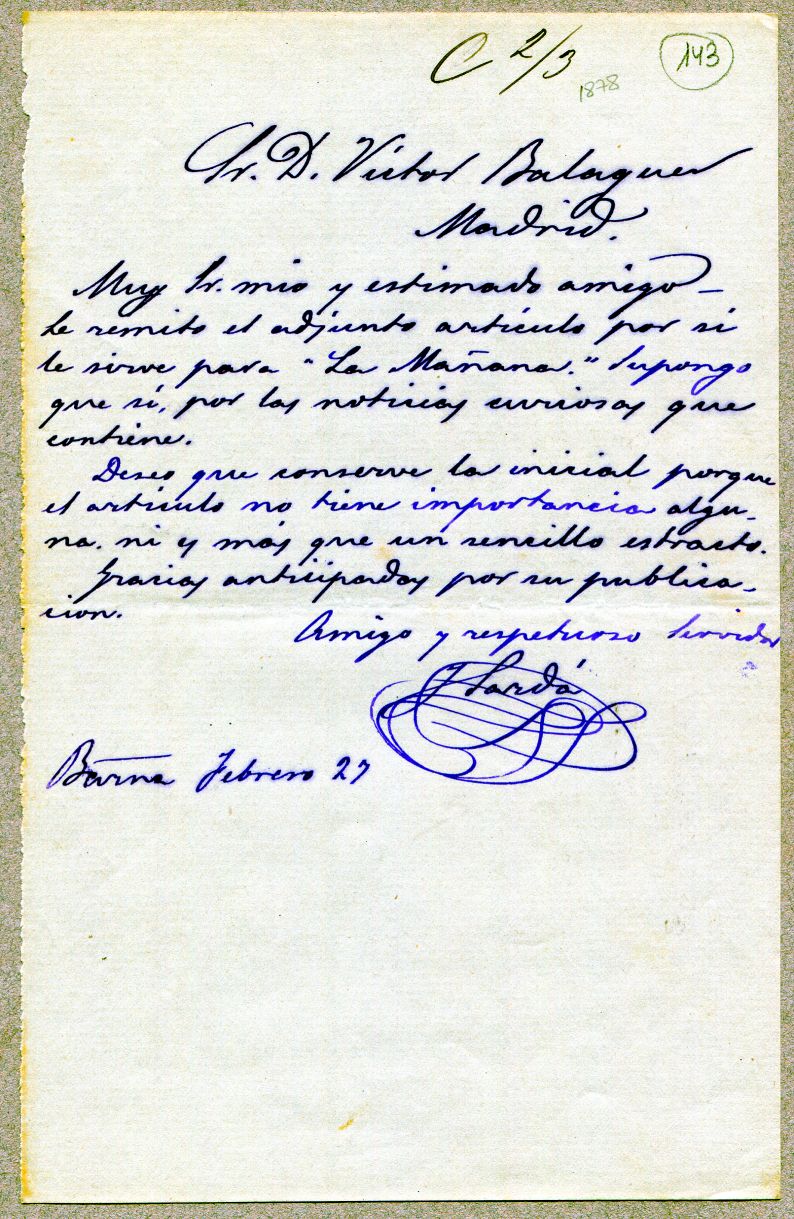 C 2/3
143
1878
Sr. D. Victor Balaguer
Madrid.
Muy Sr. mio y estimado amigo –
Le remito el adjunto artículo por si
le sirve para "La Mañana." Supongo
que sí, por las noticias curiosas que
contiene.
Deseo que conserve la inicial porque
el artículo no tiene importancia algu-
na. ni es más que un sencillo estracto.
Gracias anticipadas por su publica-
cion.
Amigo y respetuoso servidor
J Sardá
Barna Febrero 27